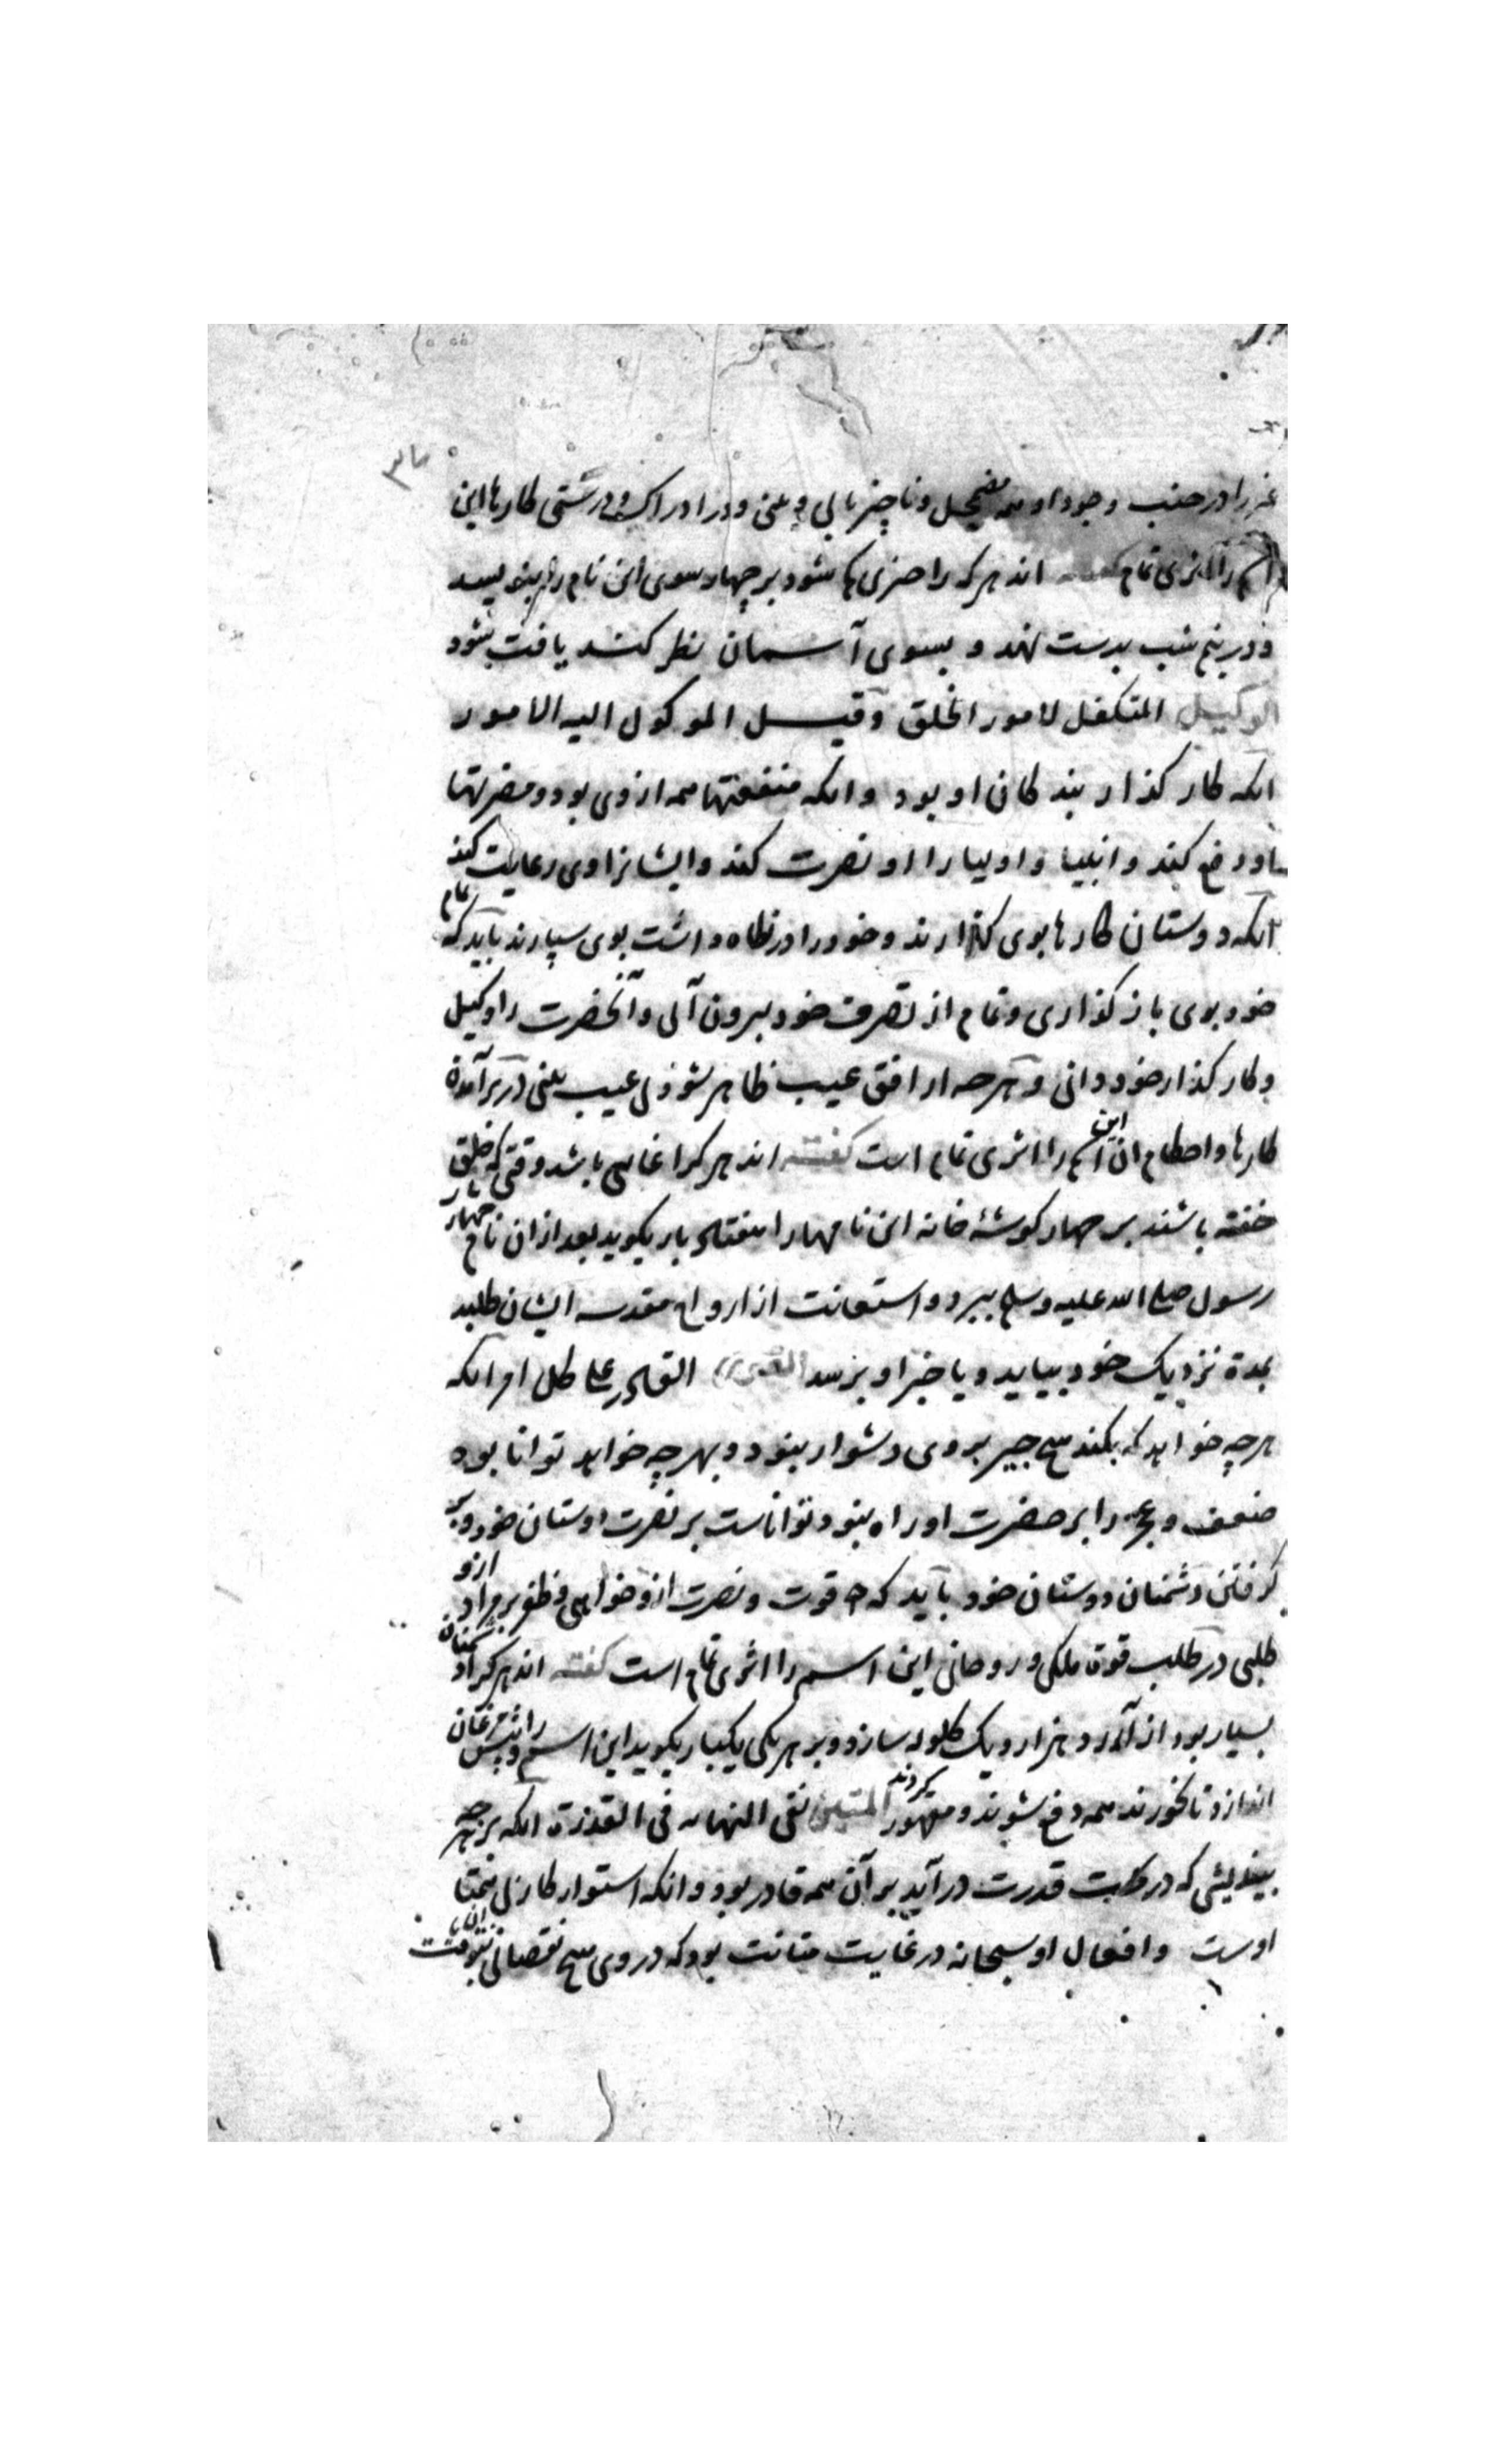 غیر را در جنب وجود او همه مضمحل و ناچیز یابی و یعنی و در ادراک و درستی کارها این
اسم را اثری تمام اند هر که را چیزی کم شود بر چهار سوی این نام را بنویسد
و در نیم شب بدست نهد و بسوی آسمان نظر کند یافت شود
الوکیل المتکفل لامور الخلق و قیل الموکول الیه الامور
انکه کار گذار بندگان او بود و انکه منفعتها همه از وی بود و مضرتها
او دفع کند و انبیا و اولیا را او نصرت کند و ایشانرا وی رعایت کند
انکه دوستان کارها بوی گذارند و خود را در نگاه داشت بوی سپارند باید که تمام
خود بوی باز گذاری و تمام از تصرف خود بیرون آئی و آنحضرت را وکیل
و کار گذار خود دانی و هر چه از افق غیب ظاهر شود بی عیب بینی در برآمدن
کارها و احکام ان این اسم را اثری تمام است گفته اند هر کرا غایبی باشد وقتی که خلق
خفته باشند بر چهار گوشهٔ خانه این نامها را هفتاد بار بگوید بعد از ان نام چهار یار
رسول صلی الله علیه وسلم ببرد و استعانت از ارواح مقدسه ایشان طلبد
بمدة نزدیک خود بیاید و یا خبر او برسد القوی القادر علی کل امر انکه
هر چه خواهد که بکند هیچ چیز بر وی دشوار نبود و بهر چه خواهد توانا بود
ضعف و عجز را بر حضرت او راه نبود و تواناست بر نصرت دوستان خود و بر
گرفتن دشمنان دوستان خود باید که قوت و نصرت ازو خواهی و ظفر بر مراد ازو
طلبی در طلب قوة ملکی و روحانی این اسم را اثری تمام است گفته اند هر کرا دشمنان
بسیار بود از آرد هزار و یک گلوله سازد و بر هر یکی یکبار بگوید این اسم را و پیش مرغان
اندازد تا بخورند همه دفع شوند و مقهور گردند المتین نفی النهایه فی القدرة انکه بر هر چه
بینایشی که در تحت قدرت در آید بر آن همه قادر بود و انکه استوار کار بی همتا
اوست و افعال او سبحانه در غایت متانت بود که در وی هیچ نقصانی نبود